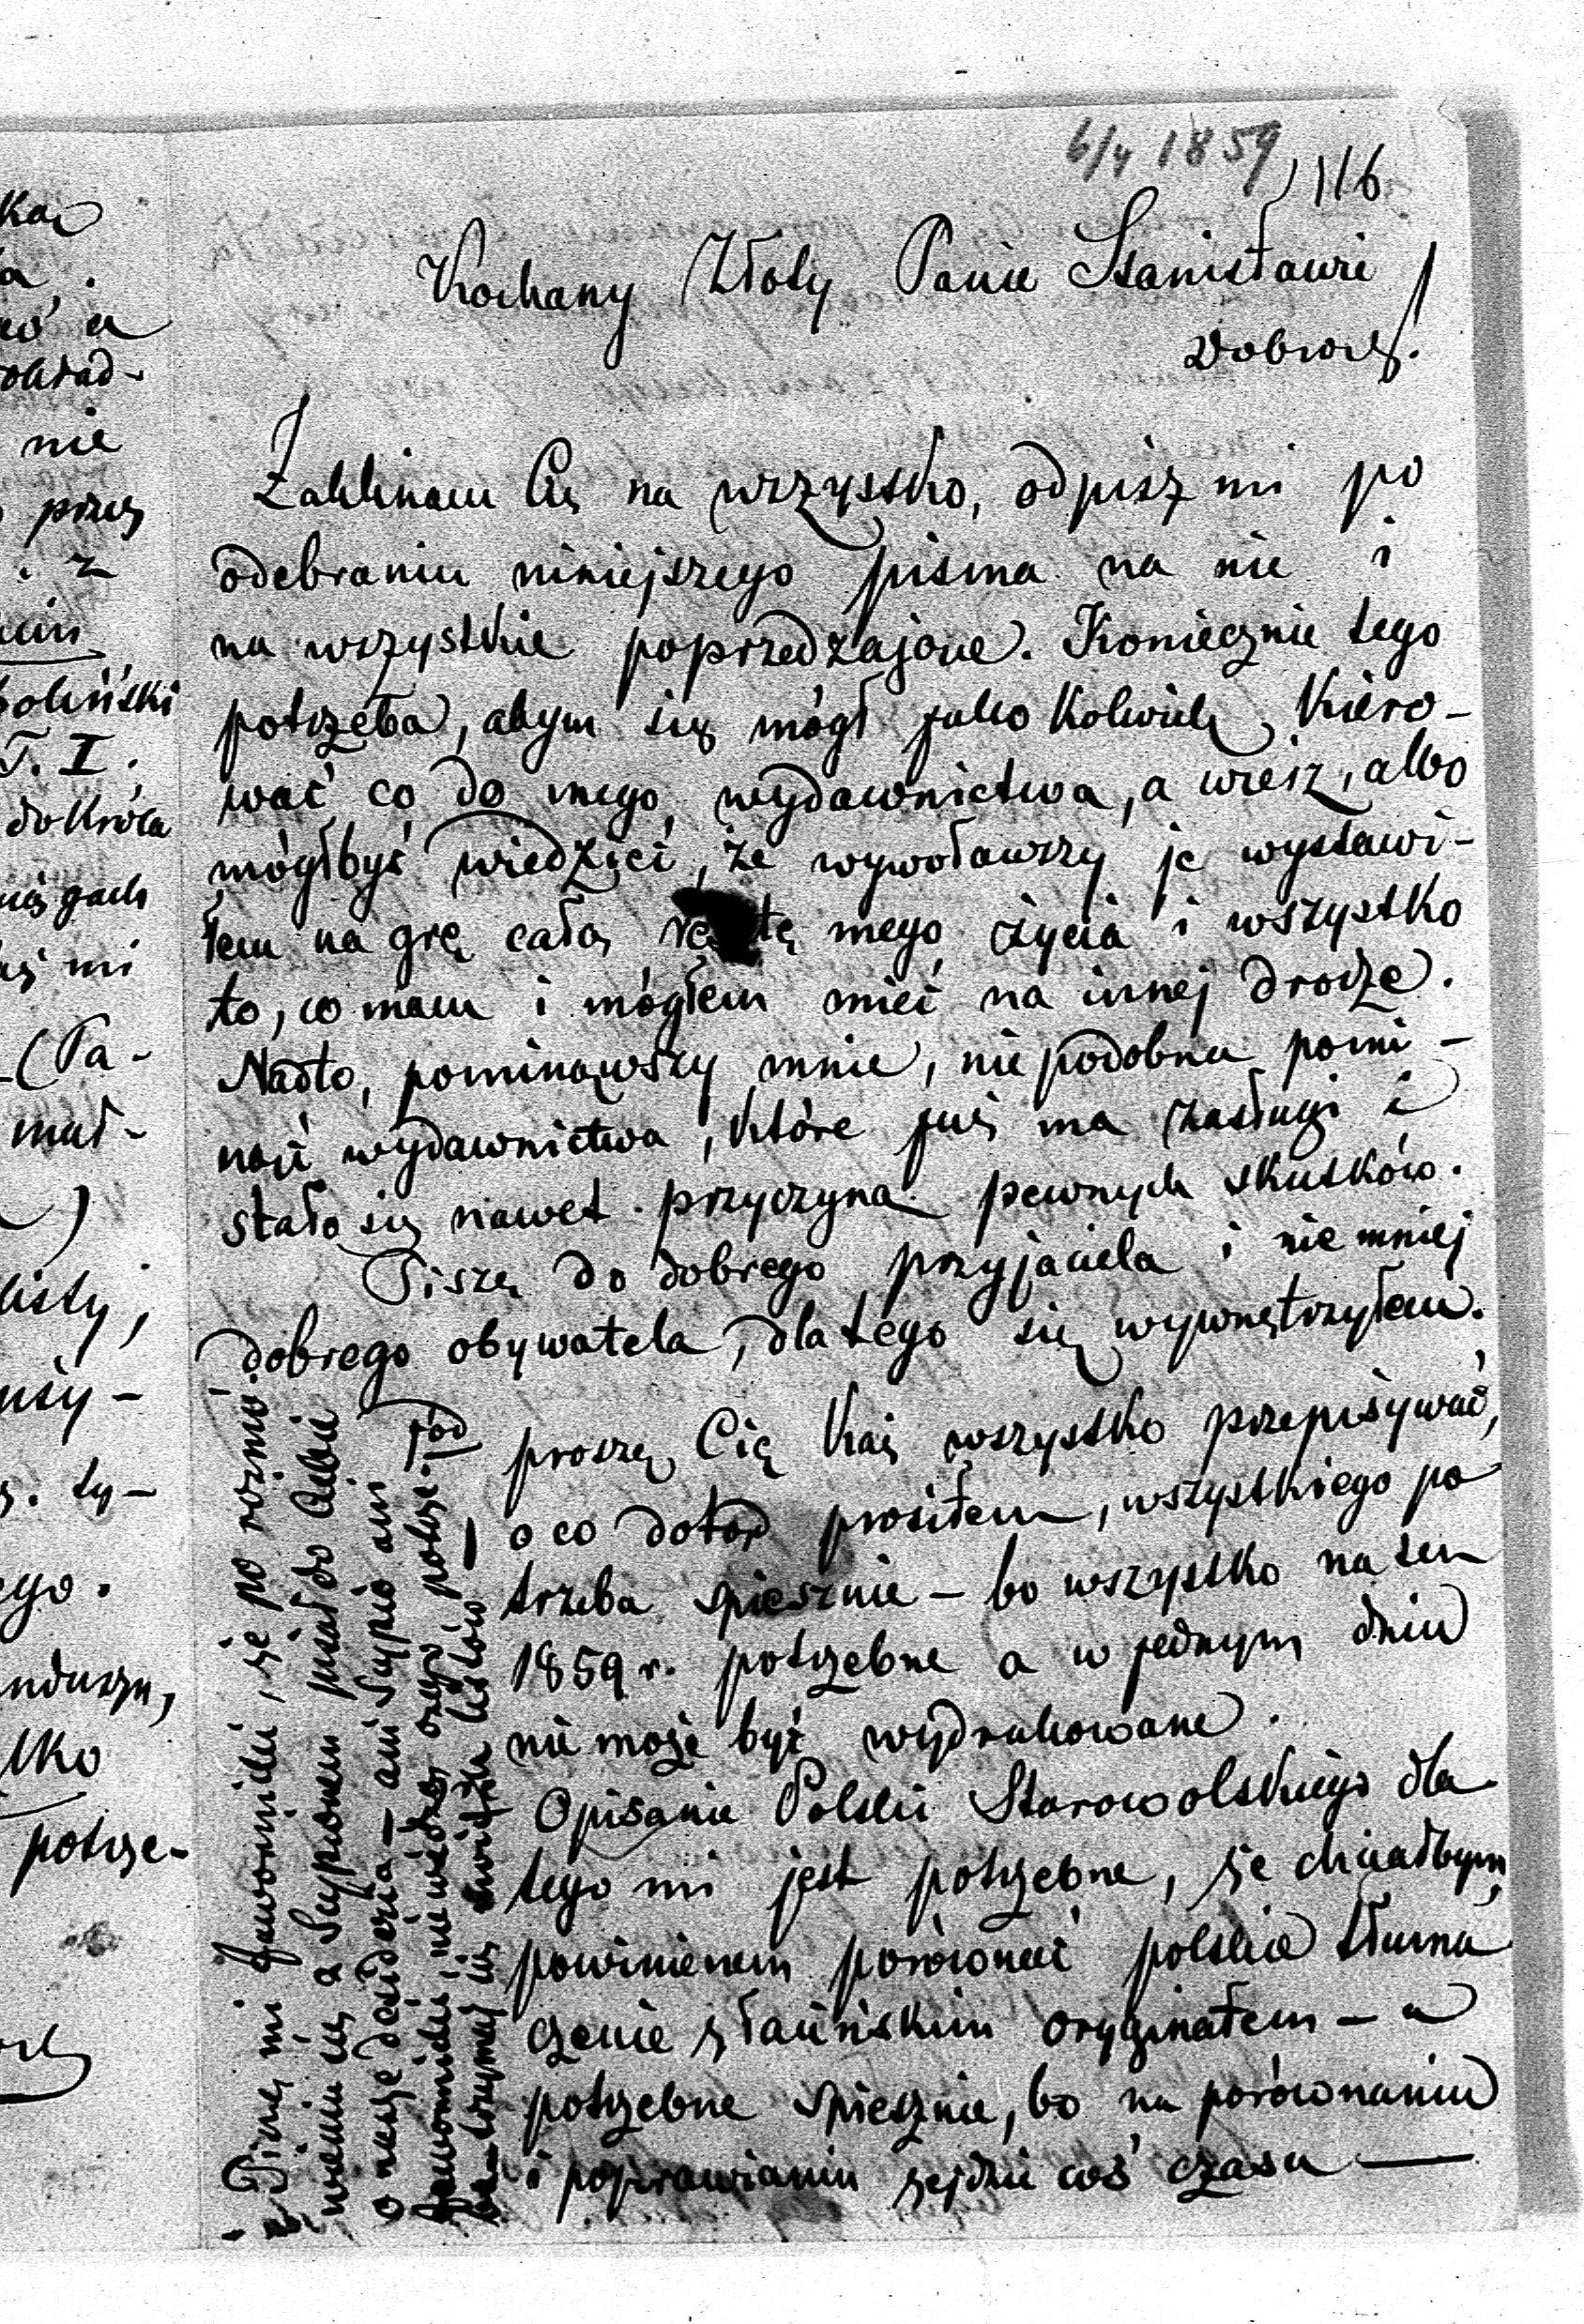 6/4 1859
116
Kochany Złoty Panie Stanisławie
Dobrodz.
Zaklinam Cię na wszystko, odpisz mi po
odebraniu niniejszego pisma na nie i
na wszystkie poprzedzające. Koniecznie tego
potrzeba, abym się mógł jako kolwiek kiero-
wać co do mego wydawnictwa, a wiesz, albo
mógłbyś wiedzieć, że wywoławszy je wystawi-
łem na grę całą resztę mego życia i wszystko
to, co mam i mogłem mieć na innej drodze.
Nadto, pominąwszy mnie, nie podobna pomi-
nąć wydawnictwa, które już ma zasługi i
stało się nawet przyczyną pewnych skutków.
Piszę do dobrego przyjaciela i nie mniej
dobrego obywatela, dlatego się wywnętrzyłem.
proszę Cię każ wszystko przepisywać,
o co dotąd prosiłem, wszystkiego po
trzeba spiesznie – bo wszystko na ten
1859 r. potrzebne a w jednym dniu
nie może być wydrukowane.
Opisanie Polski Starowolskiego dla
tego mi jest potrzebne, że chciałbym,
powinienem porównać polskie tłuma
czenie z łacińskim oryginałem – a
potrzebne spiesznie, bo na porównaniu
i poprawianiu zejdzie coś czasu —
mi Jawornicki, że po
a Scypionem pisał do
o nasze desideria – ani Scypio ani
Jawornicki nie wiedzą czego potrze-
listów
pod
kaą
nie
przez
z
T. I.
do Króla
mi
(Pa-
listy,
ego.
lko
potrze-